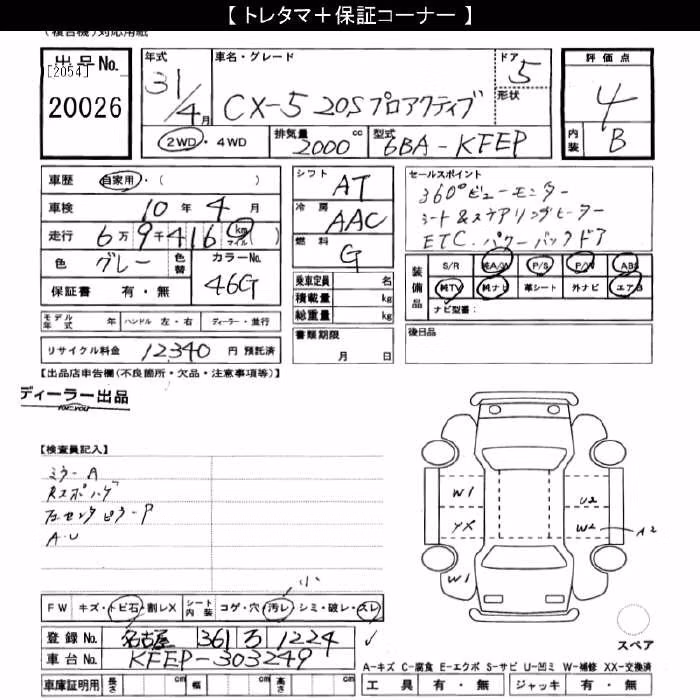 【 トレタマ＋保証コーナー 】
(複合機)対応用紙
出品No.
[2054]
20026
年式
31/4月
車名・グレード
CX-5 20Sプロアクティブ
ドア
5
形状
評価点
4
内装
B
2WD・4WD
排気量
2000 cc
型式
6BA-KFEP
車歴 自家用・( )
車検 10年 4月
走行 6万9千416 km マイル ( )
色 グレー 色替 カラーNo.
46G
保証書 有・無
モデル年式 年 ハンドル 左・右 ディーラー・並行
リサイクル料金 12340 円 預託済
シフト AT
冷房 AAC
燃料 G
乗車定員 名
積載量 kg
総重量 kg
書類期限
月 日
セールスポイント
360°ビューモニター
シート&ステアリングヒーター
ETC. パワーバックドア
装備品
S/R 純A/W P/S P/W ABS
純TV 純ナビ 革シート 外ナビ エアB
ナビ型番:
後日品
【出品店申告欄(不良箇所・欠品・注意事項等)】
ディーラー出品
FOR YOU
【検査員記入】
ミラーA
A・U
W1
U2
YX
W2
A2
W1
小
FW キズ・トビ石・割レX シート内装 コゲ・穴・汚レ・シミ・破レ・スレ
登録No. 名古屋 361 万 1224
車台No. KFEP-303249
車庫証明用 長さ cm 幅 cm 高さ cm
スペア
A-キズ C-腐食 E-エクボ S-サビ U-凹ミ W-補修 XX-交換済
工具 有・無 ジャッキ 有・無